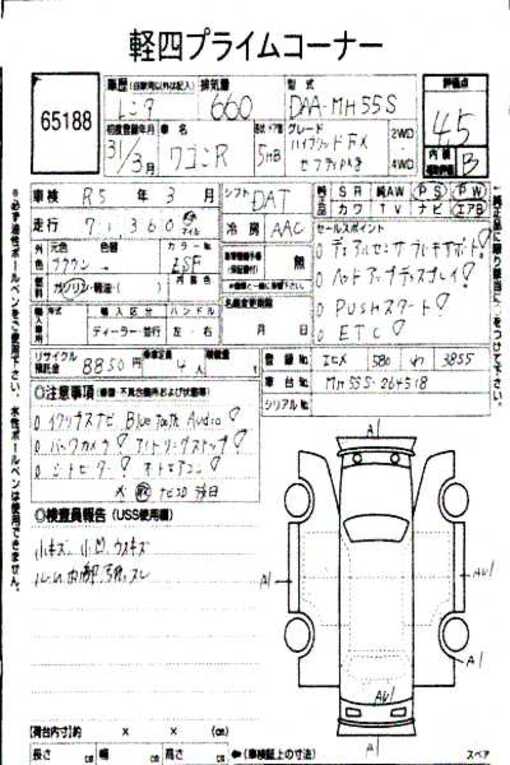 軽四プライムコーナー
65188
車歴(自家用以外は記入)
レンタ
排気量
660
型式
DAA-MH55S
評価点
4.5
初度登録年月
31/3月
車名
ワゴンR
ドア
5HB
グレード
ハイブリッドFX
セフティPKG
2WD
4WD
内装
B
車検 R5 年 3 月
シフト DAT
純正品 SR 純AW PS PW
カワ TV ナビ エアB
走行 71,360
マイル
冷房 AAC
セールスポイント
デュアルセンサブレーキサポート!
ヘッドアップディスプレイ!
PUSHスタート!
ETC!
外色 元色 色替 カラーNo
ブラウン
内装色
燃料 ガソリン・軽油・( )
無
輸入区分 ハンドル
ディーラー・並行 左・右
名義変更期限
月 日
リサイクル預託金 8850円
乗車定員 4人
積載量
登録No エヒメ 580 わ 3855
車台No MH55S-264518
シリアルNo
◎注意事項
イクリプスナビ Bluetooth Audio!
バックカメラ! アイドリングストップ!
シートヒーター! オートエアコン!
◎検査員報告(USS使用欄)
小キズ、小凹、ウスキズ
A1
A1
AU1
A1
AU1
A1
[荷台内寸]約 × × (cm)
長さ cm 幅 cm 高さ cm
←(車検証上の寸法)
スペア
※必ず油性ボールペンをご使用下さい。水性ボールペンは使用できません。